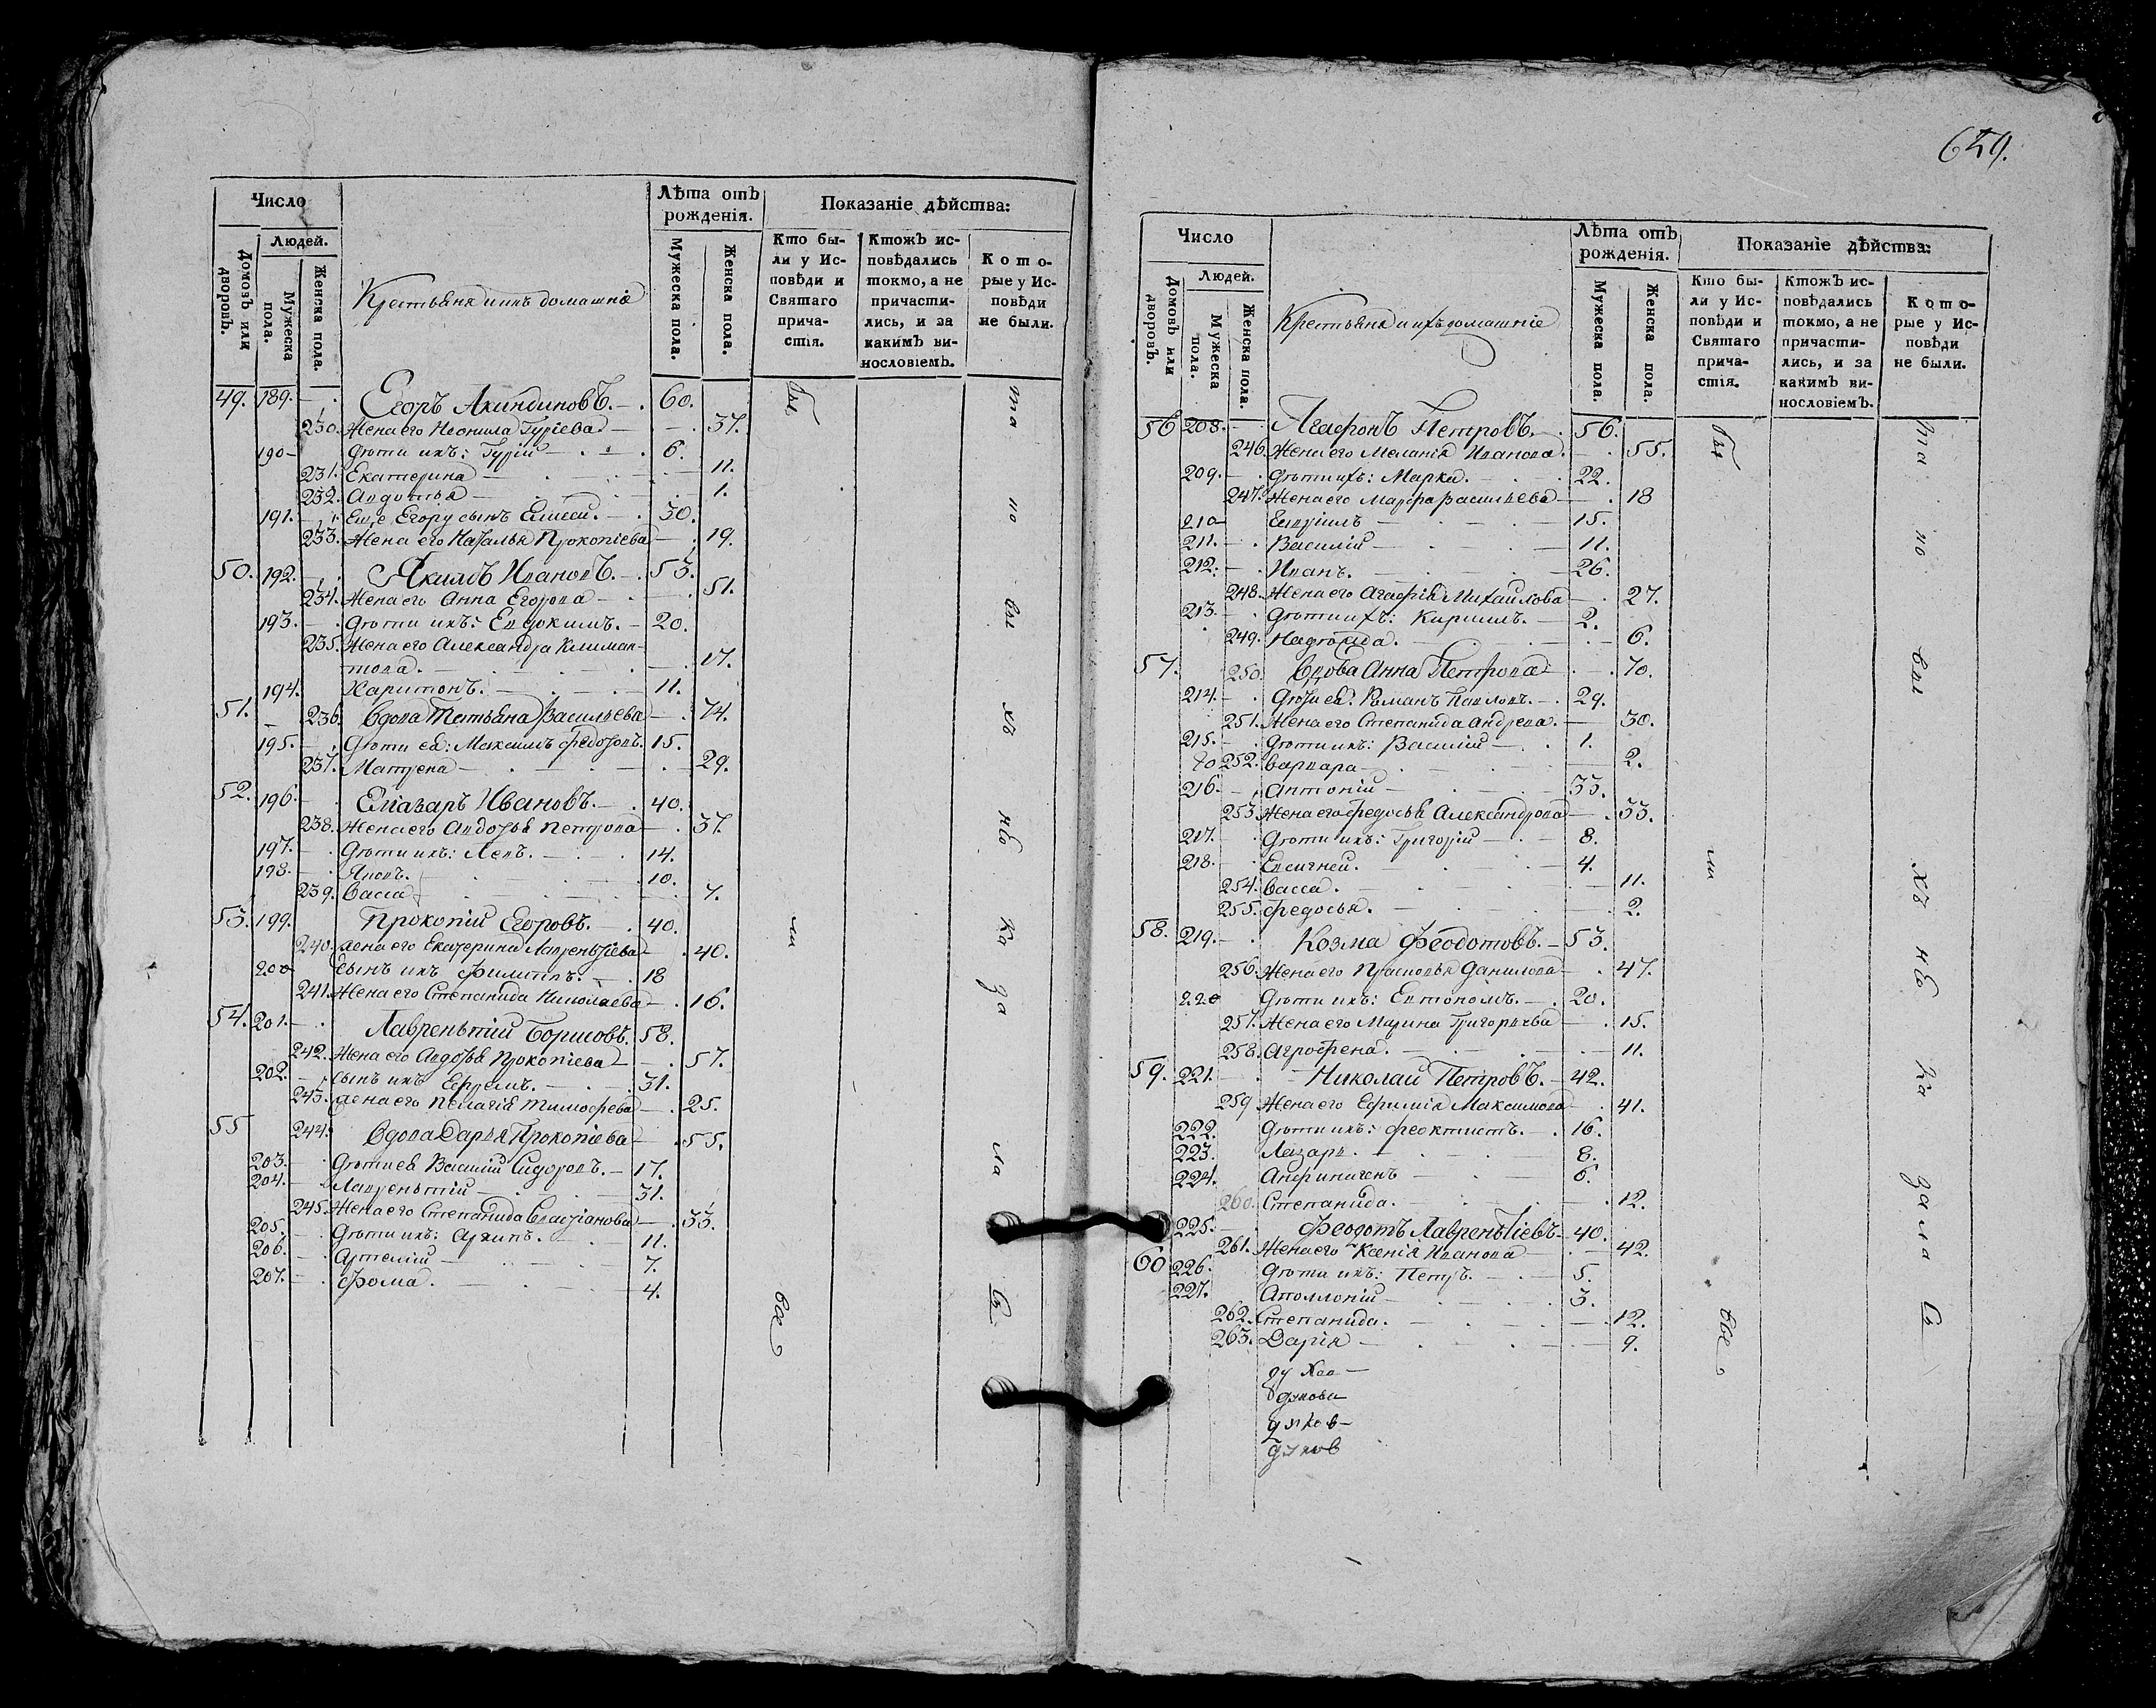 Число
Людей.
Домовъ или дворовъ.
Мужеска пола.
Женска пола.
Крестьяна и ихъ домашнiе
Лѣта отъ рожденiя.
Мужеска пола.
Женска пола.
Показанiе дѣйства:
Кто были у Исповѣди и Святаго причастiя.
Ктожъ исповѣдались токмо, а не причастились, и за какимъ винословiемъ.
Которые у Исповѣди не были.
49. 189. Егоръ Акиндиновъ. 60.
230. Жена его Неонила Гурiева 37.
190 дѣти ихъ: Гурiй 6.
231. Екатерина 11.
232. Авдотья 1.
191. Еще Егору сынъ Елисей. 30.
233. Жена его Наталья Прокопiева 19.
50. 192. Якимъ Ивановъ. 53.
234. Жена его Анна Егорова 51.
193. дѣти ихъ: Евдокимъ. 20.
235. Жена его Александра Климан-
това. 17.
194. Харитонъ. 11.
51. 236. Вдова Татьяна Васильева 74.
195. дѣти ея: Максимъ Федоровъ. 15.
237. Матрена 29.
52. 196. Елiазаръ Ивановъ. 40.
238. Жена его Авдотья Петрова 37.
197. дѣти ихъ: Левъ. 14.
198. Яковъ. 10.
239. Васса 7.
53. 199. Прокопiй Егоровъ. 40.
240. жена его Екатерина Лаврентiева 40.
200 сынъ ихъ Филиппъ. 18
241. Жена его Степанида Николаева 16.
54. 201. Лаврентiй Борисовъ. 58.
242. Жена его Авдотья Прокопiева 57.
202. сынъ ихъ Ефремъ. 31.
243. жена его Пелагiя Тимофеева 25.
55 244. Вдова Дарья Прокопiева 55.
203. дѣти ея Василiй Сидоровъ. 17.
204. Лаврентiй 31.
245. Жена его Степанида 33.
205. дѣти ихъ: Архипъ. 11.
206. Артемiй 7.
207. Фома. 4.
бы
ли
все
659.
Число
Людей.
Домовъ или дворовъ.
Мужеска пола.
Женска пола.
Крестьяна и ихъ домашнiе
Лѣта отъ рожденiя.
Мужеска пола.
Женска пола.
Показанiе дѣйства:
Кто были у Исповѣди и Святаго причастiя.
Ктожъ исповѣдались токмо, а не причастились, и за какимъ винословiемъ.
Которые у Исповѣди не были.
56 208. Агафонъ Петровъ. 56.
246. Жена его Меланiя Иванова. 55.
209. дѣти ихъ: Марко. 22.
247. Жена его Марфа Васильева 18
210 15.
211. Василiй 11.
212. Иванъ. 26.
248. Жена его Агафiя Михайлова 27.
213. дѣти ихъ: Кирилъ. 2.
249. 6.
57. 250. Вдова Анна Петрова 70.
214. дѣти ея: Романъ Павловъ. 29.
251. Жена его Степанида Андреева. 30.
215. дѣти ихъ: Василiй 1.
252. Варвара 2.
216. Антонiй 33.
253. Жена его Федосья Александрова 33.
217. дѣти ихъ: Григорiй 8.
218. Евсигней. 4.
254. Васса. 11.
255. Федосья. 2.
58. 219. Козма Феодотовъ. 53.
256. Жена его Прасковья Данилова 47.
220 дѣти ихъ: Евтономъ. 20.
257. Жена его Марина Григорьева 15.
258. Агрофена. 11.
59. 221. Николай Петровъ. 42.
259 Жена его Ефимiя Максимова 41.
222. дѣти ихъ: Феоктистъ. 16.
223. Лазарь. 8.
224. Анфиногенъ 6.
260. Степанида. 12.
225. Феодотъ Лаврентiевъ 40.
261. Жена его Ксенiя Иванова 42.
60 226. дѣти ихъ: Петръ. 5.
227. Аполлонiй 3.
262. Степанида. 12.
263. Дарiя 9.
бы
ли
все